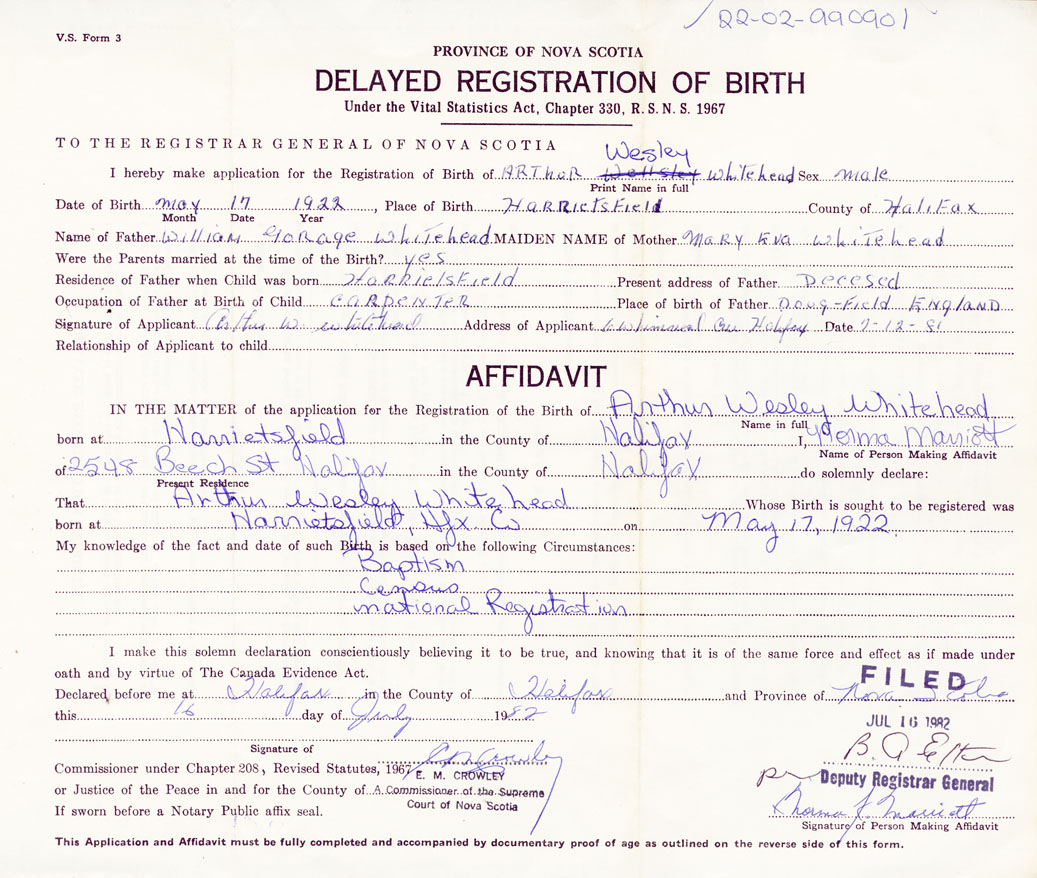 22-02-990901
V.S. Form 3
PROVINCE OF NOVA SCOTIA
DELAYED REGISTRATION OF BIRTH
Under the Vital Statistics Act, Chapter 330, R.S.N.S. 1967
TO THE REGISTRAR GENERAL OF NOVA SCOTIA
Wesley
I hereby make application for the Registration of Birth of ARTHUR Wellsley Whitehead Sex male
Print Name in full
Date of Birth may 17 1922, Place of Birth HARRIETSField County of HaliFax
Month Date Year
Name of Father William Gorage Whitehead MAIDEN NAME of Mother MARY EVA Whitehead
Were the Parents married at the time of the Birth? yes
Residence of Father when Child was born HARRIELSField Present address of Father Decesed
Occupation of Father at Birth of Child CARPENTER Place of birth of Father Doug-Field ENGLAND
Signature of Applicant Arthur W. whitehead Address of Applicant Halifax Date 7-12-81
Relationship of Applicant to child
AFFIDAVIT
IN THE MATTER of the application for the Registration of the Birth of Arthur Wesley Whitehead
Name in full
born at Harrietsfield in the County of Halifax I, Norma Marriott
Name of Person Making Affidavit
of 2548 Beech St Halifax in the County of Halifax do solemnly declare:
Present Residence
That Arthur Wesley Whitehead Whose Birth is sought to be registered was
born at Harrietsfield, Hfx Co on May 17, 1922
My knowledge of the fact and date of such Birth is based on the following Circumstances:
Baptism
Census
national Registration
I make this solemn declaration conscientiously believing it to be true, and knowing that it is of the same force and effect as if made under
oath and by virtue of The Canada Evidence Act.
FILED
Declared before me at Halifax in the County of Halifax and Province of Nova Scotia
this 16 day of July 1982
JUL 16 1982
Signature of
Commissioner under Chapter 208, Revised Statutes, 1967 E. M. CROWLEY
Deputy Registrar General
or Justice of the Peace in and for the County of A Commissioner of the Supreme
Court of Nova Scotia
If sworn before a Notary Public affix seal.
Norma J. Marriott
Signature of Person Making Affidavit
This Application and Affidavit must be fully completed and accompanied by documentary proof of age as outlined on the reverse side of this form.